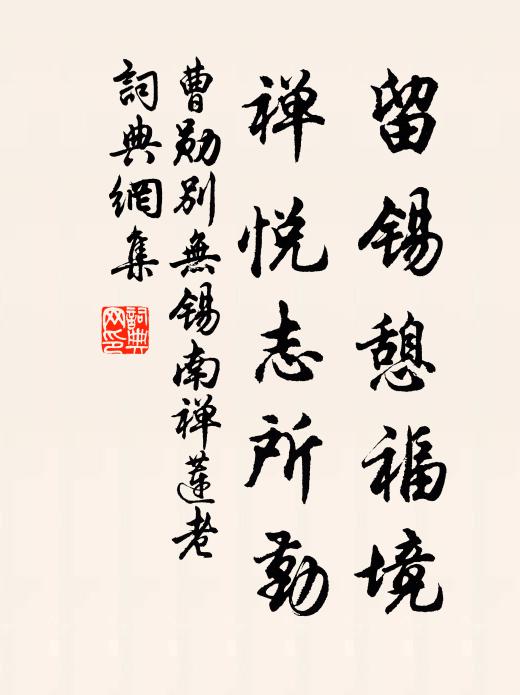 留锡憩福境
禅悦志所勤
曹勋别無锡南禅莲老
詞典網集
詞典网印